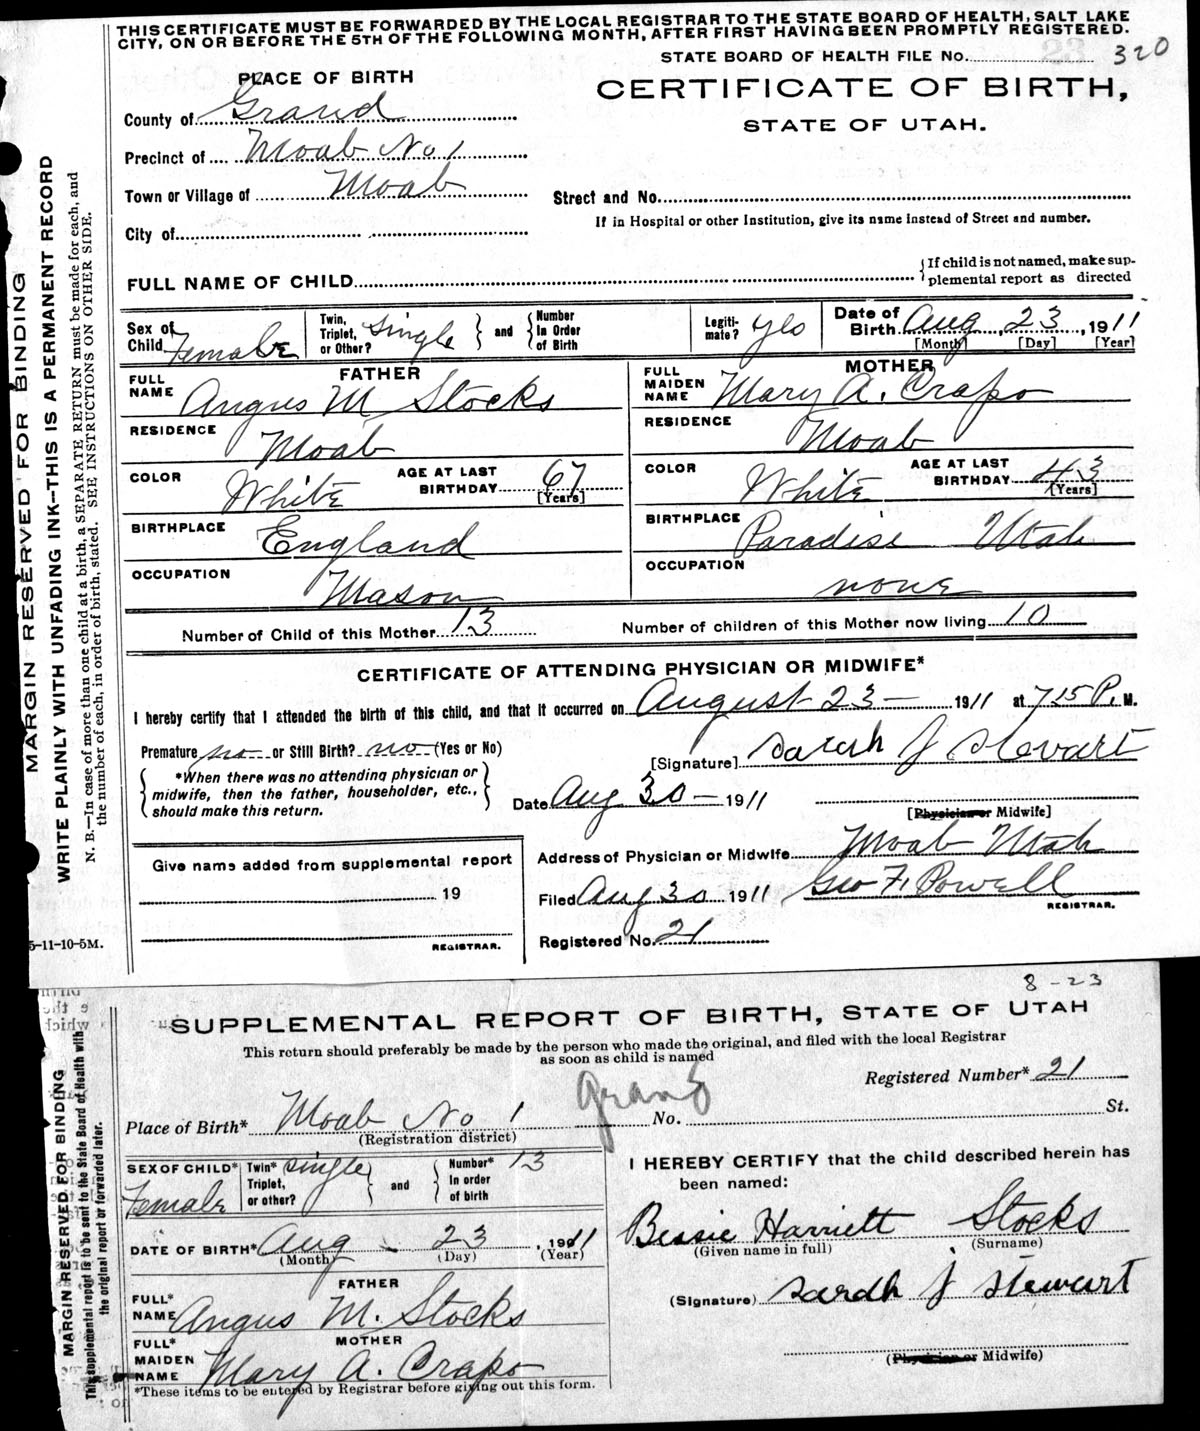 THIS CERTIFICATE MUST BE FORWARDED BY THE LOCAL REGISTRAR TO THE STATE BOARD OF HEALTH, SALT LAKE
CITY, ON OR BEFORE THE 5TH OF THE FOLLOWING MONTH, AFTER FIRST HAVING BEEN PROMPTLY REGISTERED.
STATE BOARD OF HEALTH FILE No. 320
PLACE OF BIRTH
CERTIFICATE OF BIRTH,
STATE OF UTAH.
County of Grand
Precinct of Moab No 1
Town or Village of Moab
Street and No.
If in Hospital or other Institution, give its name instead of Street and number.
City of
FULL NAME OF CHILD
{If child is not named, make sup-
plemental report as directed
Sex of Child Female
Twin, Triplet, or Other? single } and { Number In Order of Birth
Legiti-mate? yes
Date of Birth Aug, 23, 1911
[Month] [Day] [Year]
FATHER
FULL NAME Angus M Stocks
RESIDENCE Moab
COLOR White AGE AT LAST BIRTHDAY 67 [Years]
BIRTHPLACE England
OCCUPATION Mason
MOTHER
FULL MAIDEN NAME Mary A. Crapo
RESIDENCE Moab
COLOR White AGE AT LAST BIRTHDAY 43 [Years]
BIRTHPLACE Paradise Utah
OCCUPATION none
Number of Child of this Mother 13 Number of children of this Mother now living 10
CERTIFICATE OF ATTENDING PHYSICIAN OR MIDWIFE*
I hereby certify that I attended the birth of this child, and that it occurred on August 23 – 1911 at 715 P. M.
Premature no or Still Birth? no (Yes or No)
[Signature] Sarah J Stewart
{*When there was no attending physician or
midwife, then the father, householder, etc.,
should make this return.}
Date Aug 30 – 1911
[Physician or Midwife]
Address of Physician or Midwife Moab Utah
Give name added from supplemental report
19
REGISTRAR.
Filed Aug 30 1911 Geo F. Powell
REGISTRAR.
Registered No. 21
MARGIN RESERVED FOR BINDING
WRITE PLAINLY WITH UNFADING INK--THIS IS A PERMANENT RECORD
N. B.—In case of more than one child at a birth, a SEPARATE RETURN must be made for each, and
the number of each, in order of birth, stated. SEE INSTRUCTIONS ON OTHER SIDE.
5-11-10-5M.
8-23
SUPPLEMENTAL REPORT OF BIRTH, STATE OF UTAH
This return should preferably be made by the person who made the original, and filed with the local Registrar
as soon as child is named
Registered Number* 21
Grand
Place of Birth* Moab No 1 No. St.
(Registration district)
SEX OF CHILD* Female
Twin* Triplet, or other? single } and { Number* In order of birth 13
DATE OF BIRTH* Aug 23, 1911
(Month) (Day) (Year)
FATHER
FULL* NAME Angus M. Stocks
MOTHER
FULL* MAIDEN NAME Mary A. Crapo
*These items to be entered by Registrar before giving out this form.
I HEREBY CERTIFY that the child described herein has
been named:
Bessie Harriett Stocks
(Given name in full) (Surname)
(Signature) Sarah J Stewart
(Physician or Midwife)
MARGIN RESERVED FOR BINDING
This supplemental report is to be sent to the State Board of Health with
the original report or forwarded later.